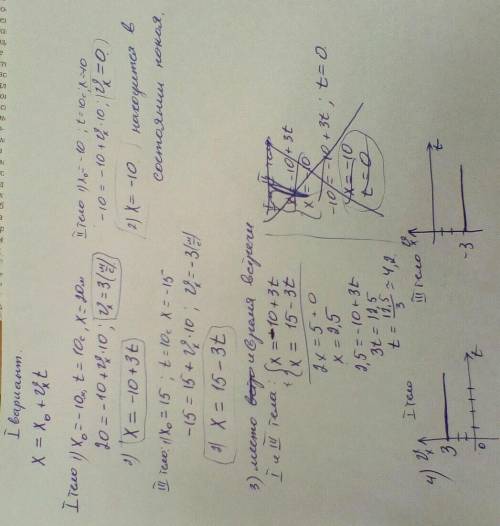 I вариант.
x = x₀ + υₓt
I тело 1) x₀ = -10м, t = 10с, x = 20м
20 = -10 + υₓ·10; υₓ = 3 (м/с)
2) x = -10 + 3t
II тело 1) x₀ = -10; t = 10с; x = -10
-10 = -10 + υₓ·10; υₓ = 0
2) x = -10 находится в
состоянии покоя.
III тело: 1) x₀ = 15; t = 10с x = -15
-15 = 15 + υₓ·10; υₓ = -3 (м/с)
2) x = 15 - 3t
3) место и время встречи
I и III тела: x = -10 + 3t
x = 15 - 3t
2x = 5 + 0
x = 2,5
2,5 = -10 + 3t
3t = 12,5
t = 12,5/3 ≈ 4,2
-10 + 3t
x = -10
-10 = -10 + 3t; t = 0
x = -10
t = 0
4) υₓ I тело
3
0 t
III тело υₓ
t
-3